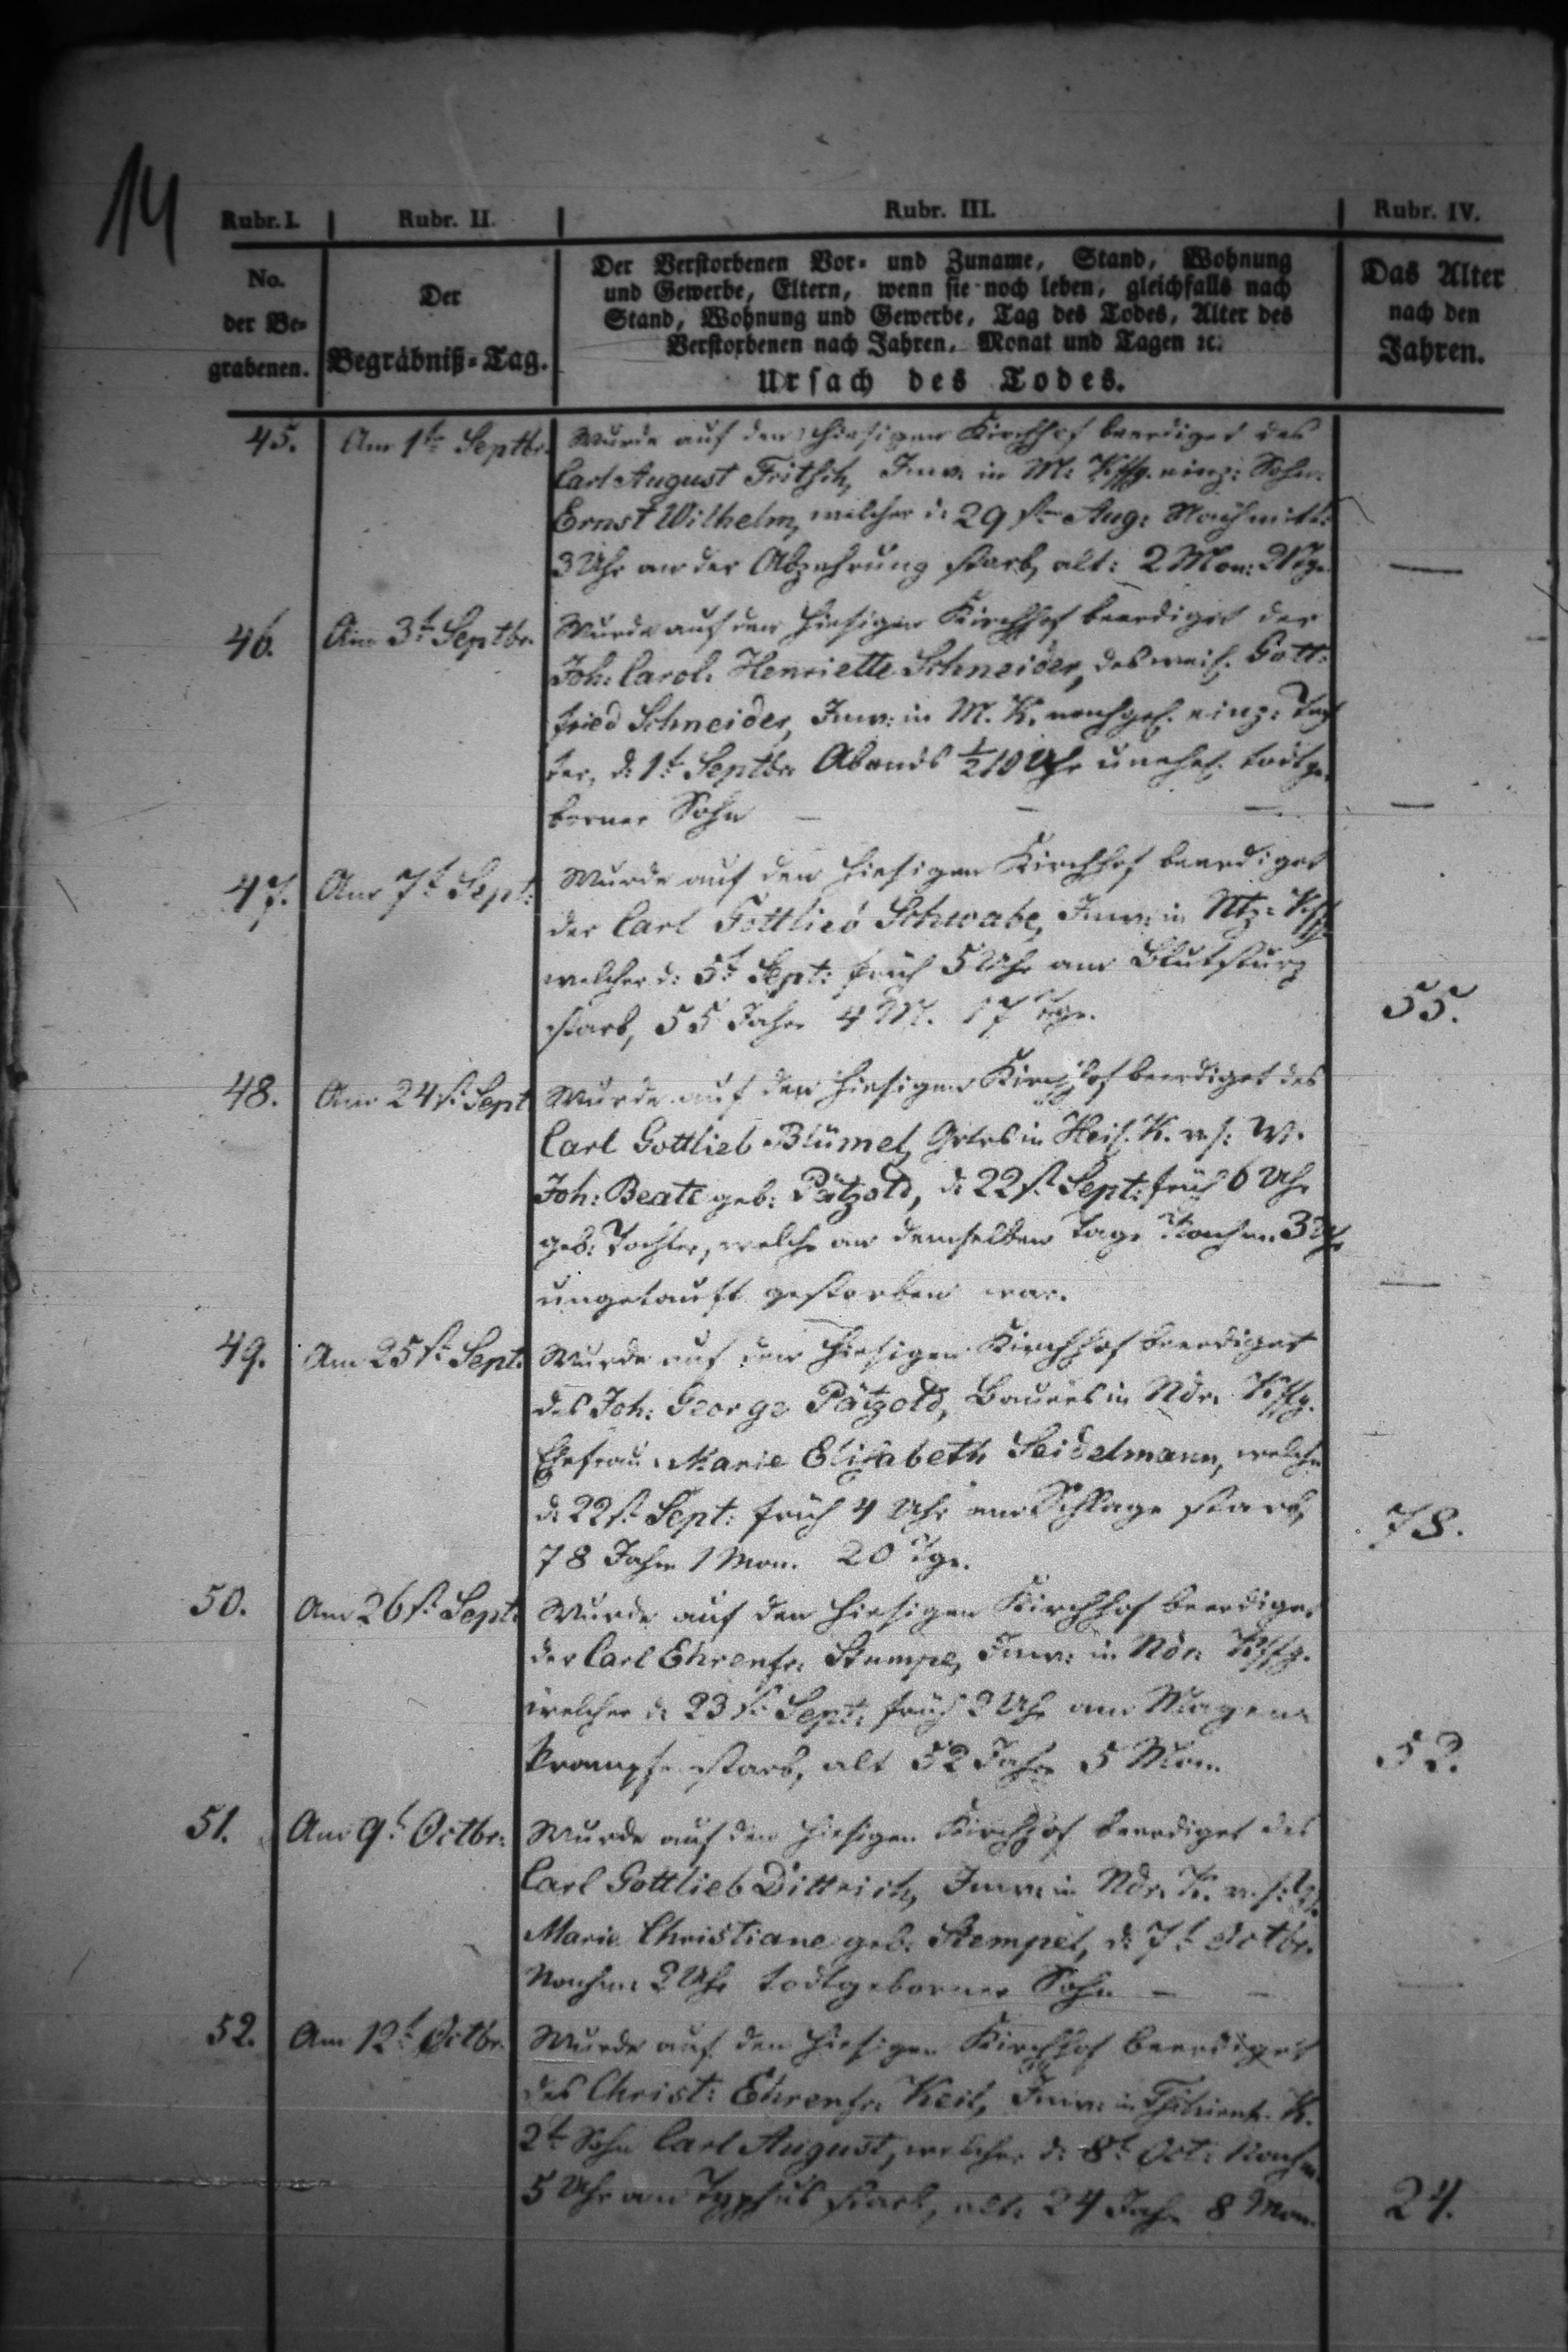 14
Rubr. I. Rubr. II. Rubr. III. Rubr. IV.
No. der Be= grabenen.
Der Begräbniß=Tag.
Der Verstorbenen Vor= und Zuname, Stand, Wohnung
und Gewerbe, Eltern, wenn sie noch leben, gleichfalls nach
Stand, Wohnung und Gewerbe, Tag des Todes, Alter des
Verstorbenen nach Jahren, Monat und Tagen ꝛc.
Ursach des Todes.
Das Alter nach den Jahren.
45. Am 1t Septbr. Wurde auf den hiesigen Kirchhof beerdiget des
Carl August Fritsch, Inw. in M: Kffg. einz: Sohn
Ernst Wilhelm, welcher d: 29st Aug: Nachmitt:
3 Uhr an der Abzehrung starb, alt: 2 Mon: —
46. Am 3t Septbr. Wurde auf den hiesigen Kirchhof beerdiget der
Joh: Carol: Henriette Schneider, des weil. Gott:
fried Schneider, Inw: in M. K. nachgel. einz: Toch
ter, d: 1t Septbr. Abends ½10 Uhr unehel. todtge
borner Sohn — — — —
47. Am 7t Sept: Wurde auf den hiesigen Kirchhof beerdiget
der Carl Gottlieb Schwabe, Inw: in Kffg
welcher d: 5t Sept: früh 5 Uhr am Blutsturz
starb, 55 Jahre 4 M. 17 Tge. 55.
48. Am 24st Sept Wurde auf den hiesigen Kirchhof beerdiget des
Carl Gottlieb Blümel, Grtnrs in K. u. s: W.
Joh: Beate geb: Pätzold, d: 22st Sept: früh 6 Uhr
geb: Tochter, welche an demselben Tage Nachm. 3 Uhr
ungetauft gestorben war. —
49. Am 25st Sept. Wurde auf den hiesigen Kirchhof beerdiget
des Joh: George Pätzold, Bauers in Ndr. Kffg.
Ehefrau Marie Elisabeth Seidelmann, welche
d: 22st Sept: früh 4 Uhr am Schlage starb,
78 Jahre 1 Mon. 20 Tge. 78.
50. Am 26st Sept. Wurde auf den hiesigen Kirchhof beerdiget
der Carl Ehrenfr. Stumpe, Inw: in Ndr: Kffg.
welcher d: 23st Sept: früh 2 Uhr am Magen=
krampfe starb, alt 52 Jahre 5 Mon. 52.
51. Am 9t Octbr: Wurde auf den hiesigen Kirchhof beerdiget des
Carl Gottlieb Dittrich, Inw. in Ndr. K. u. s: W.
Marie Christiane geb: Stempel, d: 7t Octbr.
Nachm: 2 Uhr todtgeborner Sohn — — —
52. Am 12t Octbr. Wurde auf den hiesigen Kirchhof beerdiget
des Christ: Ehrenfr. Keil, Inw: in K.
2t Sohn Carl August, welcher d: 8t Oct: Nachm.
5 Uhr am Typhus starb, alt: 24 Jahr 8 Mon. 24.